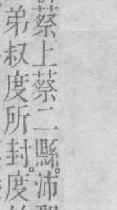 蔡上蔡二縣沛
弟叔度所封度